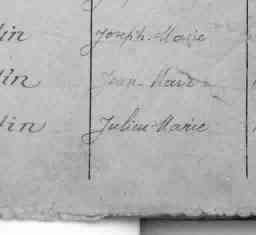 lin Joseph-Marie
lin Jean-Marie
lin Julien-Marie